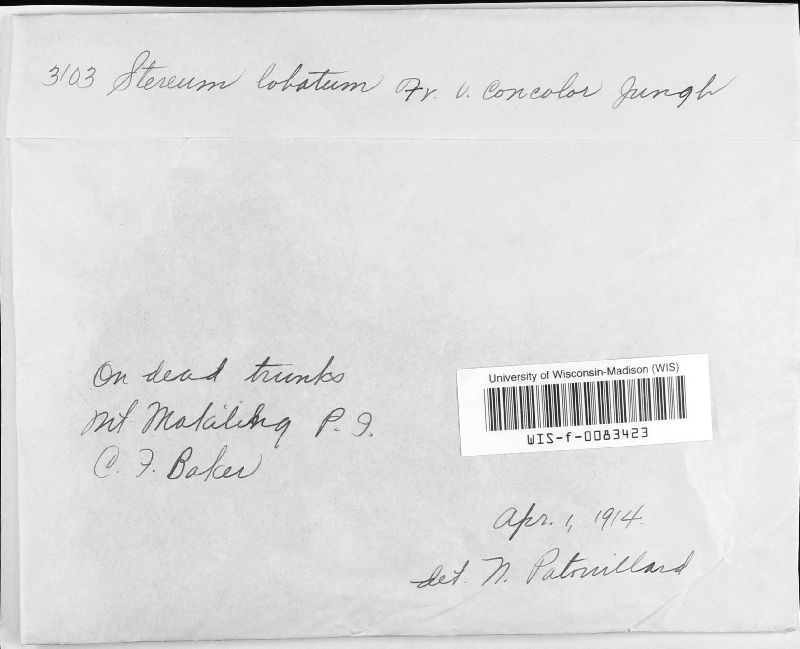 3103 Stereum lobatum Fr. v. concolor Jungh
On dead trunks
Mt Makiling P. I.
C. F. Baker
University of Wisconsin-Madison (WIS)
WIS-f-0083423
Apr. 1, 1914.
det. N. Patouillard